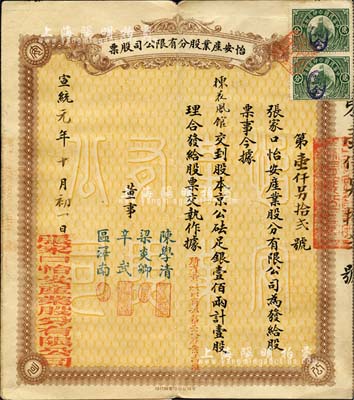 怡安產業股份有限公司股票
第壹仟另拾弍號
張家口怡安產業股分有限公司為發給股
票事今據
交到股本京公砝足銀壹佰兩計壹股
理合發給股票交執作據
董事
陳學清
梁炎卿
辛武
區澤南
宣統元年十月初一日
張家口怡安產業股分有限公司
號